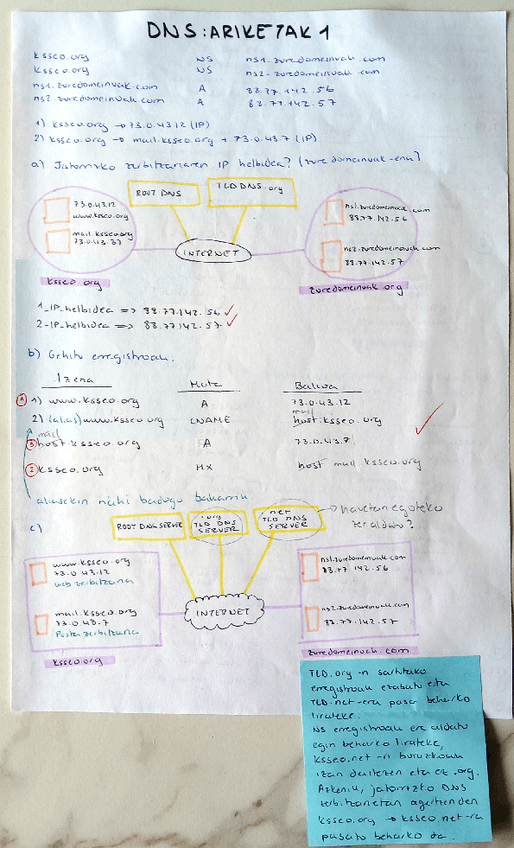 DNS: ARIKETAK 1
ksseo.org NS ns1.zuredomeinuak.com
ksseo.org NS ns2.zuredomeinuak.com
ns1.zuredomeinuak.com A 88.77.142.56
ns2.zuredomeinuak.com A 88.77.142.57
1) ksseo.org → 73.0.43.12 (IP)
2) ksseo.org → mail.ksseo.org + 73.0.43.7 (IP)
a) Jatorrizko zerbitzariaren IP helbidea? (zuredomeinuak-ena)
ROOT DNS
TLD DNS .org
73.0.43.12
www.ksseo.org
mail.ksseo.org
INTERNET
ns1.zuredomeinuak.com
88.77.142.56
ns2.zuredomeinuak.com
88.77.142.57
ksseo.org
zuredomeinuak.org
1_IP_helbidea => 88.77.142.56 ✓
2_IP_helbidea => 88.77.142.57 ✓
b) Gehitu erregistroak.
Izena Mota Balioa
① 1) www.ksseo.org A 73.0.43.12
mail
2) (alias) www.ksseo.org CNAME host.ksseo.org
mail
③ host.ksseo.org A 73.0.43.7
② ksseo.org MX host mail.ksseo.org
aliasekin nahi badugu bakarrik
c)
ROOT DNS SERVER
.org TLD DNS SERVER
.net TLD DNS SERVER
→ hauetan egoteko zer aldatu?
www.ksseo.org
73.0.43.12
web zerbitzaria
mail.ksseo.org
73.0.43.7
Posta zerbitzaria
INTERNET
ns1.zuredomeinuak.com
88.77.142.56
ns2.zuredomeinuak.com
88.77.142.57
ksseo.org
zuredomeinuak.com
TLD.org-n sartutako
erregistroak ezabatu eta
TLD.net-era pasa beharko
lirateke.
NS erregistroak ere aldatu
egin beharko lirateke,
ksseo.net-ri buruzkoak
izan daitezen eta ez .org.
Azkenik, jatorrizko DNS
zerbitzarietan agertzen den
ksseo.org → ksseo.net-ra
pasatu beharko da.